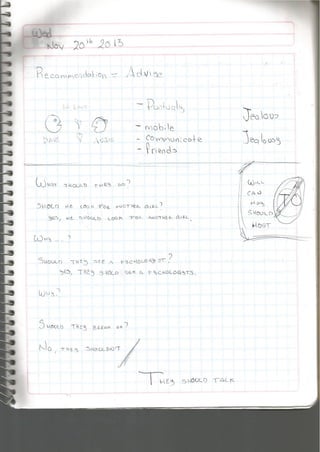 Wed
Nov 20th 2013
Recommendation = Advise
- mobile
- communicate
- friends
Jealous
Jealousy
What should they do?
Should he look for another girl?
Yes, he should look for another girl.
Why ... ?
Should they see a pschologist?
Yes, they should see a pschologists.
Why?
Should they break up?
No, they shouldn't
They should talk
Will
Can
May
Should
Must
TO